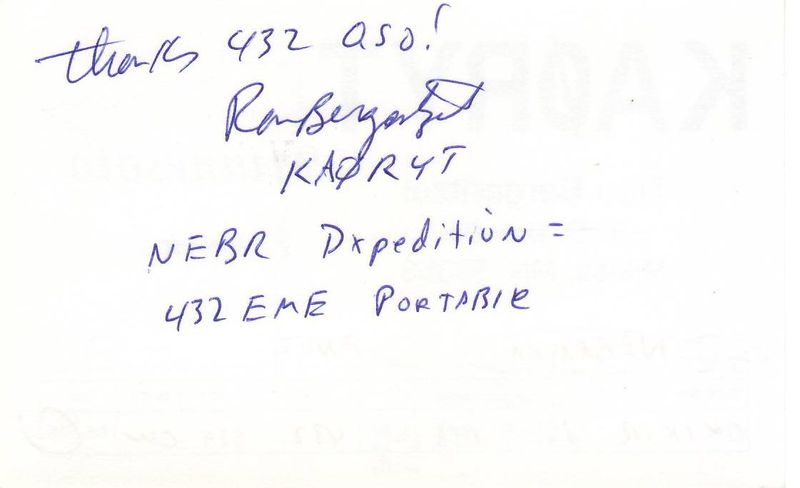 thanks 432 QSO!
Ron Bergantzel
KAØRYT
NEBR Dxpedition =
432 EME PORTABLE